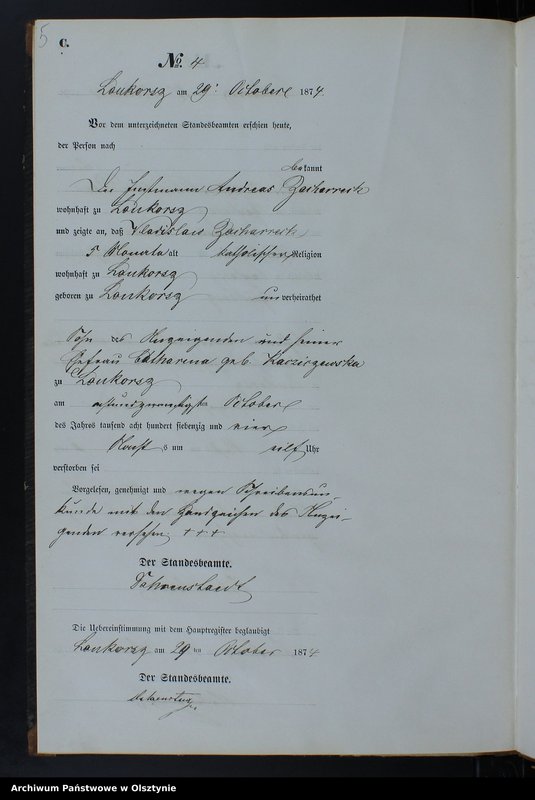 5
C.
No. 4
Loukorsz am 29. Octobere 1874.
Vor dem unterzeichneten Standesbeamten erschien heute,
der Person nach
bekannt
Der Andreas Zacharrek
wohnhaft zu Loukorsz
und zeigte an, daß Wladislaw Zacharrek
5 Monate alt katholischer Religion
wohnhaft zu Loukorsz
geboren zu Loukorsz unverheirathet
Sohn des Anzeigenden und seiner
Ehefrau Catharina geb.
zu Loukorsz
am achtundzwanzigsten Octobere
des Jahres tausend acht hundert siebenzig und vier
Nachts um eilf Uhr
verstorben sei
Vorgelesen, genehmigt und wegen Schreibensun-
kunde mit den Handzeichen des Anzei-
genden versehen. + + +
Der Standesbeamte.
Die Uebereinstimmung mit dem Hauptregister beglaubigt
Loukorsz am 29 ten October 1874
Der Standesbeamte.
Archiwum Państwowe w Olsztynie